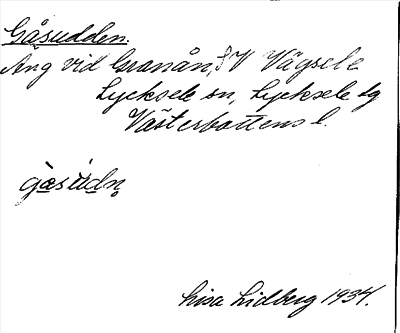 Gåsudden.
Äng vid Granån, SV Vägsele
Lycksele sn, Lycksele lg
Västerbottens l.
Lisa Lidberg 1934.